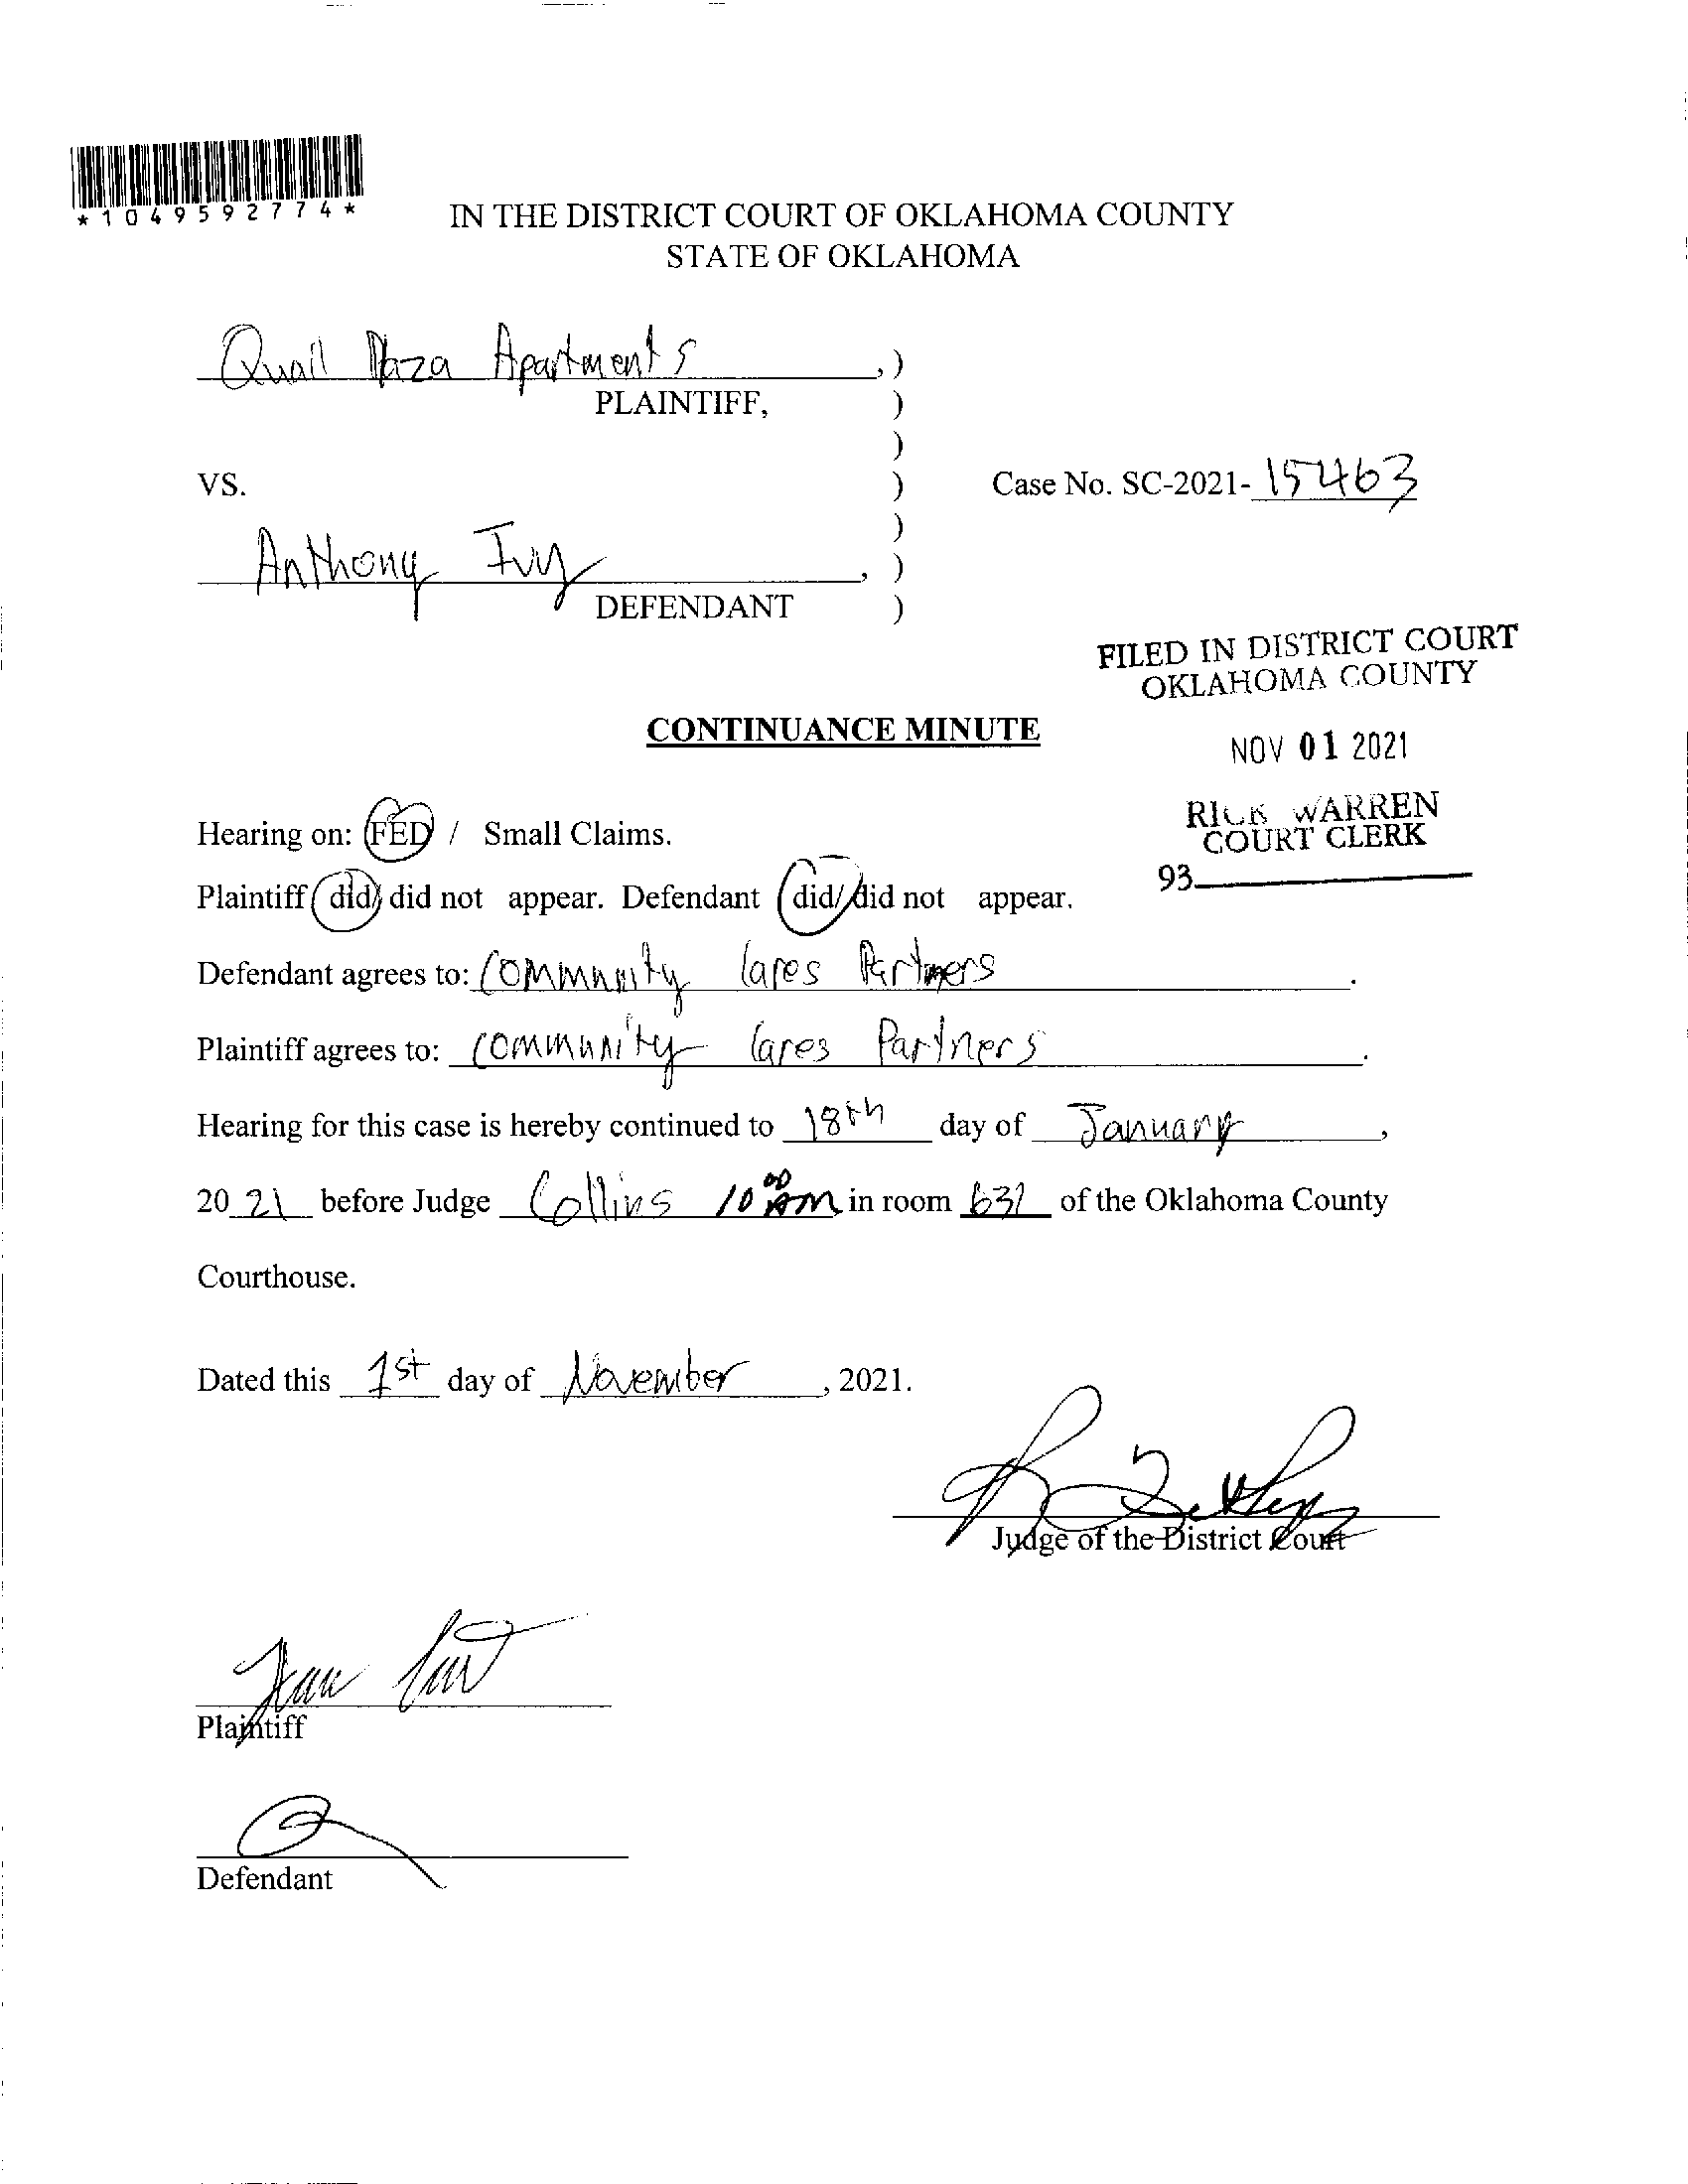 *1049592774*
IN THE DISTRICT COURT OF OKLAHOMA COUNTY
STATE OF OKLAHOMA
Quail Plaza Apartments ,)
PLAINTIFF, )
)
VS. ) Case No. SC-2021- 15463
)
Anthony Ivy , )
DEFENDANT )
FILED IN DISTRICT COURT
OKLAHOMA COUNTY
CONTINUANCE MINUTE
NOV 01 2021
RICK WARREN
COURT CLERK
93
Hearing on: FED / Small Claims.
Plaintiff did/ did not appear. Defendant did/ did not appear.
Defendant agrees to: Community Cares Partners .
Plaintiff agrees to: Community Cares Partners .
Hearing for this case is hereby continued to 18th day of January ,
20 21 before Judge Collins 10 00 AM in room 631 of the Oklahoma County
Courthouse.
Dated this 1st day of November , 2021.
Judge of the District Court
Plaintiff
Defendant